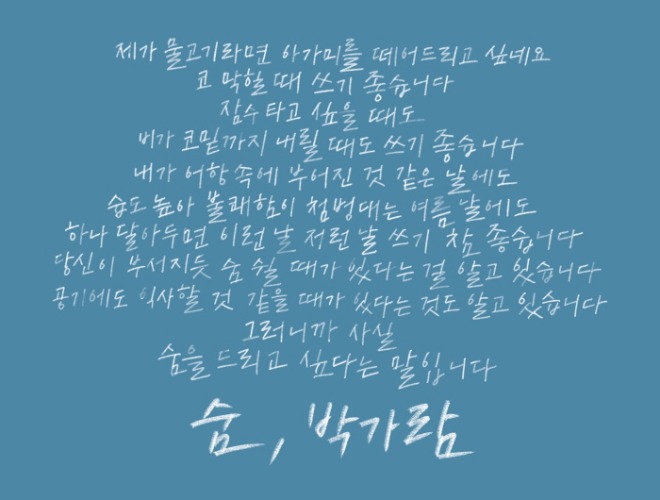 제가 물고기라면 아가미를 떼어드리고 싶네요
코 막힐 때 쓰기 좋습니다
잠수 타고 싶을 때도
비가 코밑까지 내릴 때도 쓰기 좋습니다
내가 어항 속에 부어진 것 같은 날에도
습도 높아 불쾌함이 첨벙대는 여름 날에도
하나 달아두면 이런 날 저런 날 쓰기 참 좋습니다
당신이 부서지듯 숨 쉴 때가 있다는 걸 알고 있습니다
공기에도 익사할 것 같을 때가 있다는 것도 알고 있습니다
그러니까 사실
숨을 드리고 싶다는 말입니다
숨, 박가람